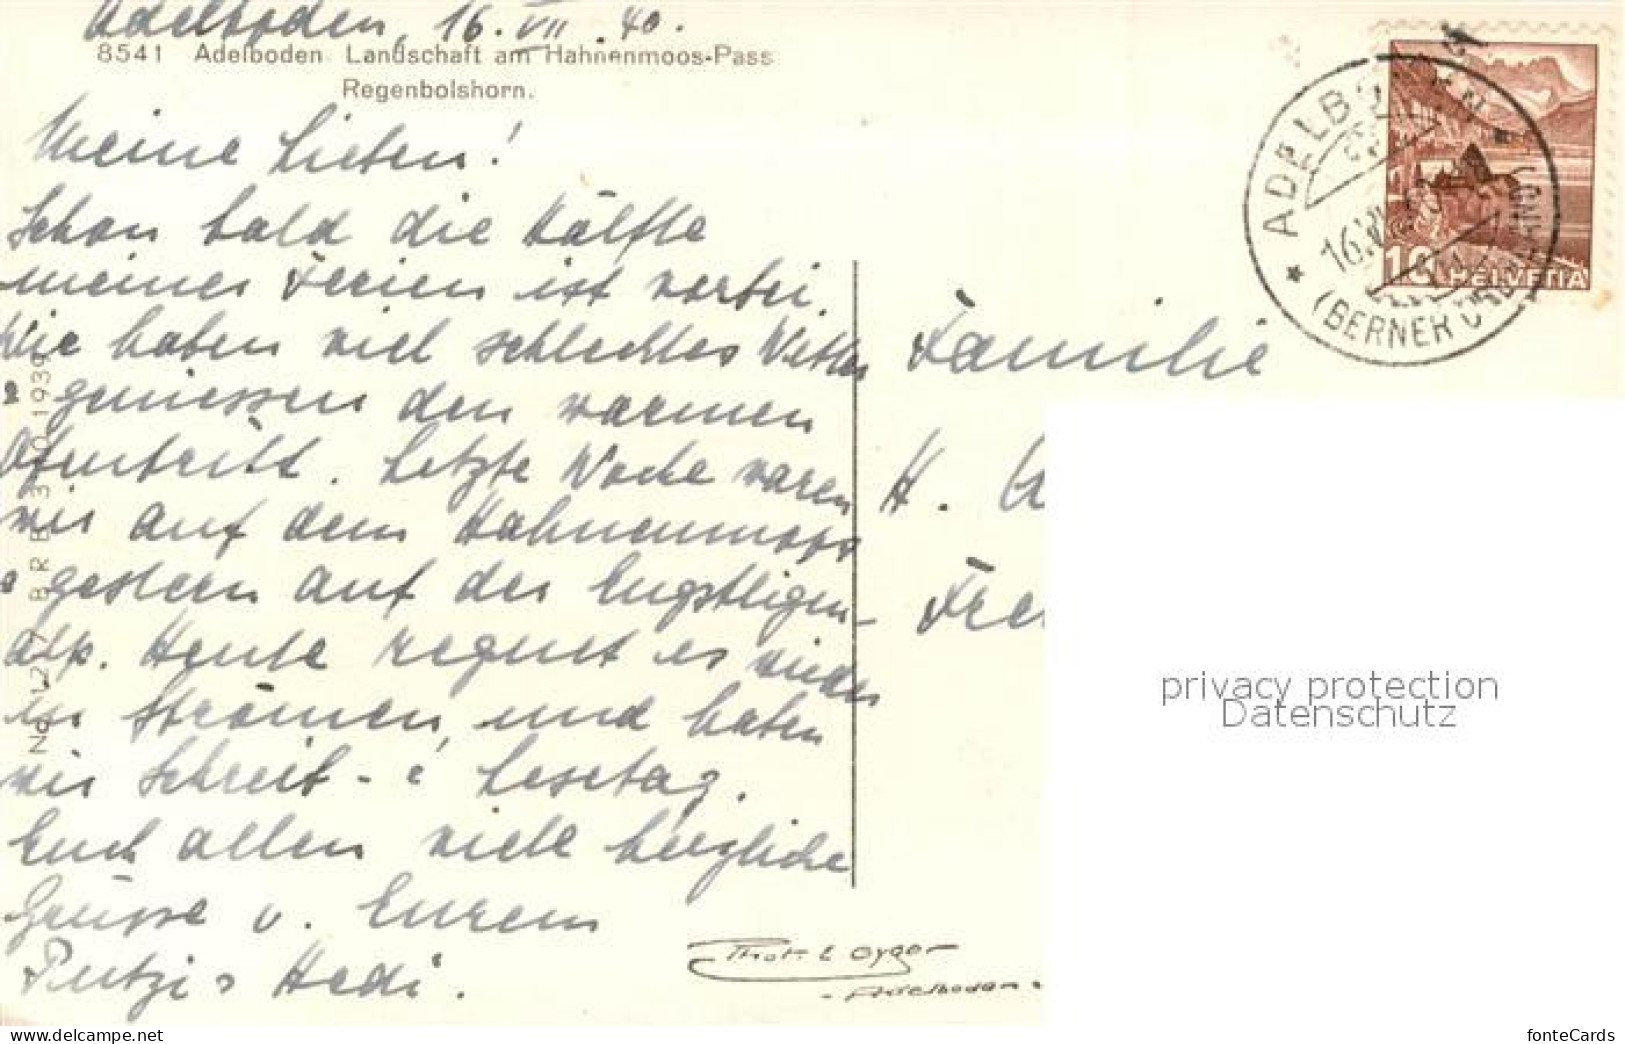 Adelboden, 16. VII. 40.
8541 Adelboden Landschaft am Hahnenmoos-Pass
Regenbolshorn.
Meine Lieben!
Schon bald die Hälfte
meiner Ferien ist vorbei.
Wir haben viel schlechtes Wetter
& geniessen den warmen
Ofentritt. Letzte Woche waren
wir auf dem Hahnenmoos
& gestern auf der Engstligen-
alp. Heute regnet es wieder
in Strömen, und haben
wir Schreib- & Lesetag.
Euch allen viele herzliche
Grüsse v. Eurem
Putzi & Hedi.
BRB 3.10.1939
ADELBODEN
16.VII.
(BERNER OBERLAND)
10 HELVETIA
Familie
H.
Phot. E. Gyger
- Adelboden -
privacy protection
Datenschutz
https://www.delcampe.net
fonteCards